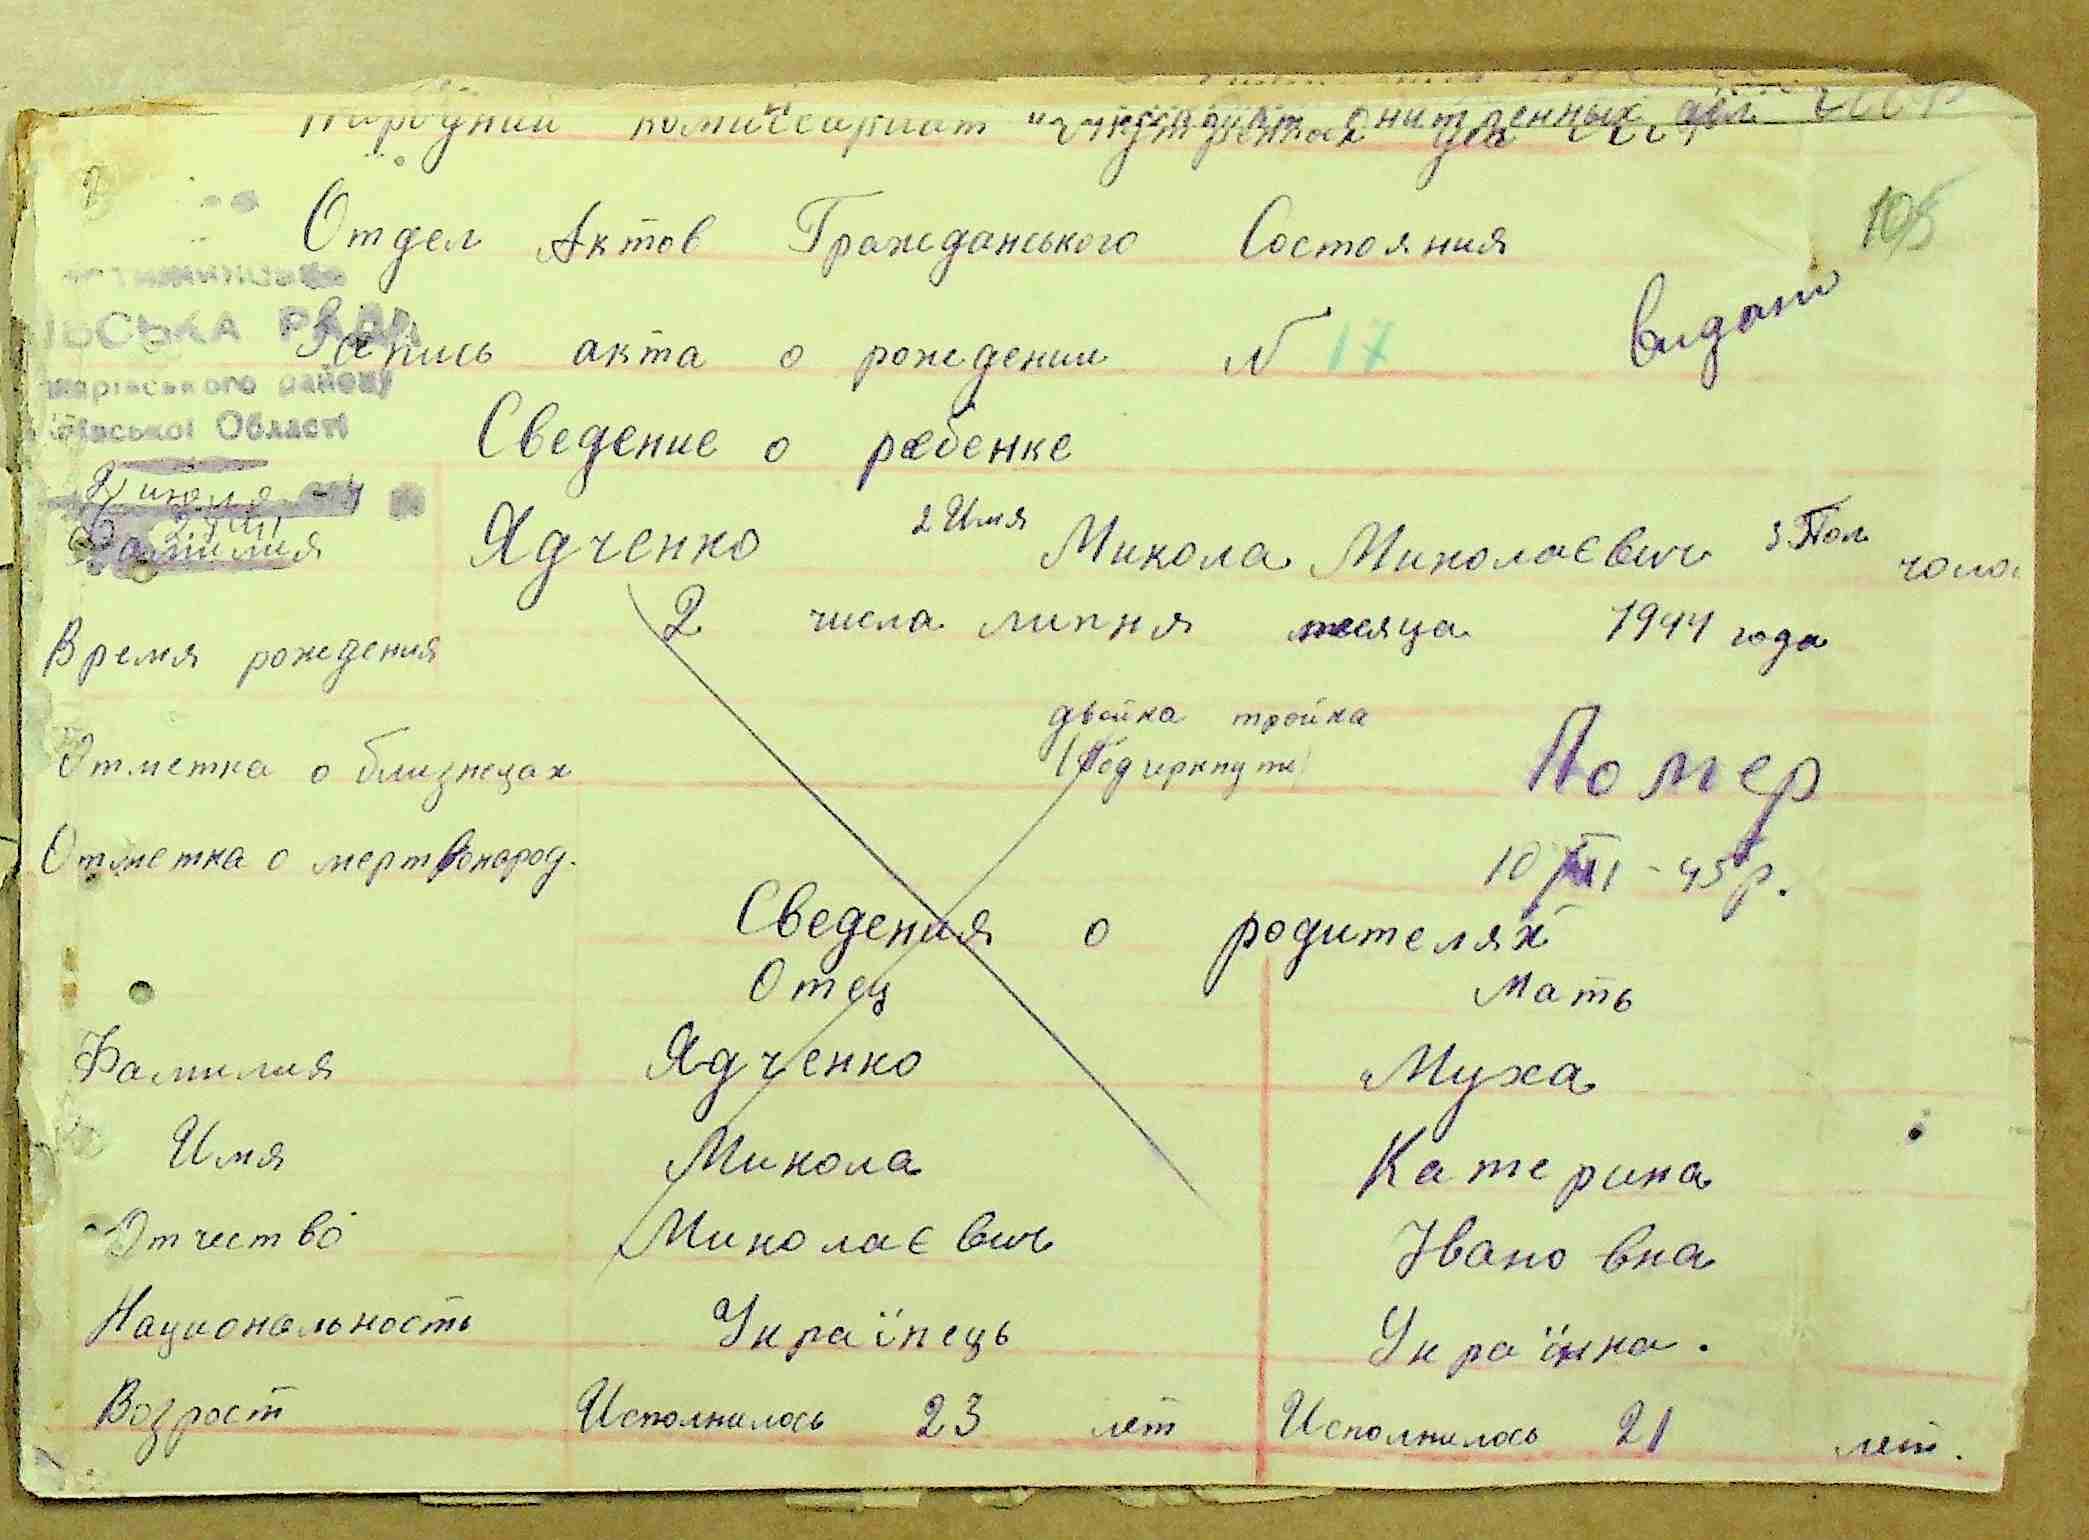 Народний комисариат внутренных дел СССР
Отдел Актов Гражданського Состояния
105
РАДА
Запись акта о рождении N 17
видано
району
Області
Сведение о ребенке
Фамилия Ядченко 2 Имя Микола Миколаєвич 3 Пол чолов
Время рождения 2 числа липня месяца 1944 года
двойка тройка
Отметка о близнецах (Подчеркнути) Помер
Отметка о мертвонарод. 10 -45 р.
Сведения о родителях
Отец Мать
Фамилия Ядченко Муха
Имя Микола Катерина
Отчество Миколаєвич Івановна
Национальность Українець Українка.
Возраст Исполнилось 23 лет Исполнилось 21 лет.